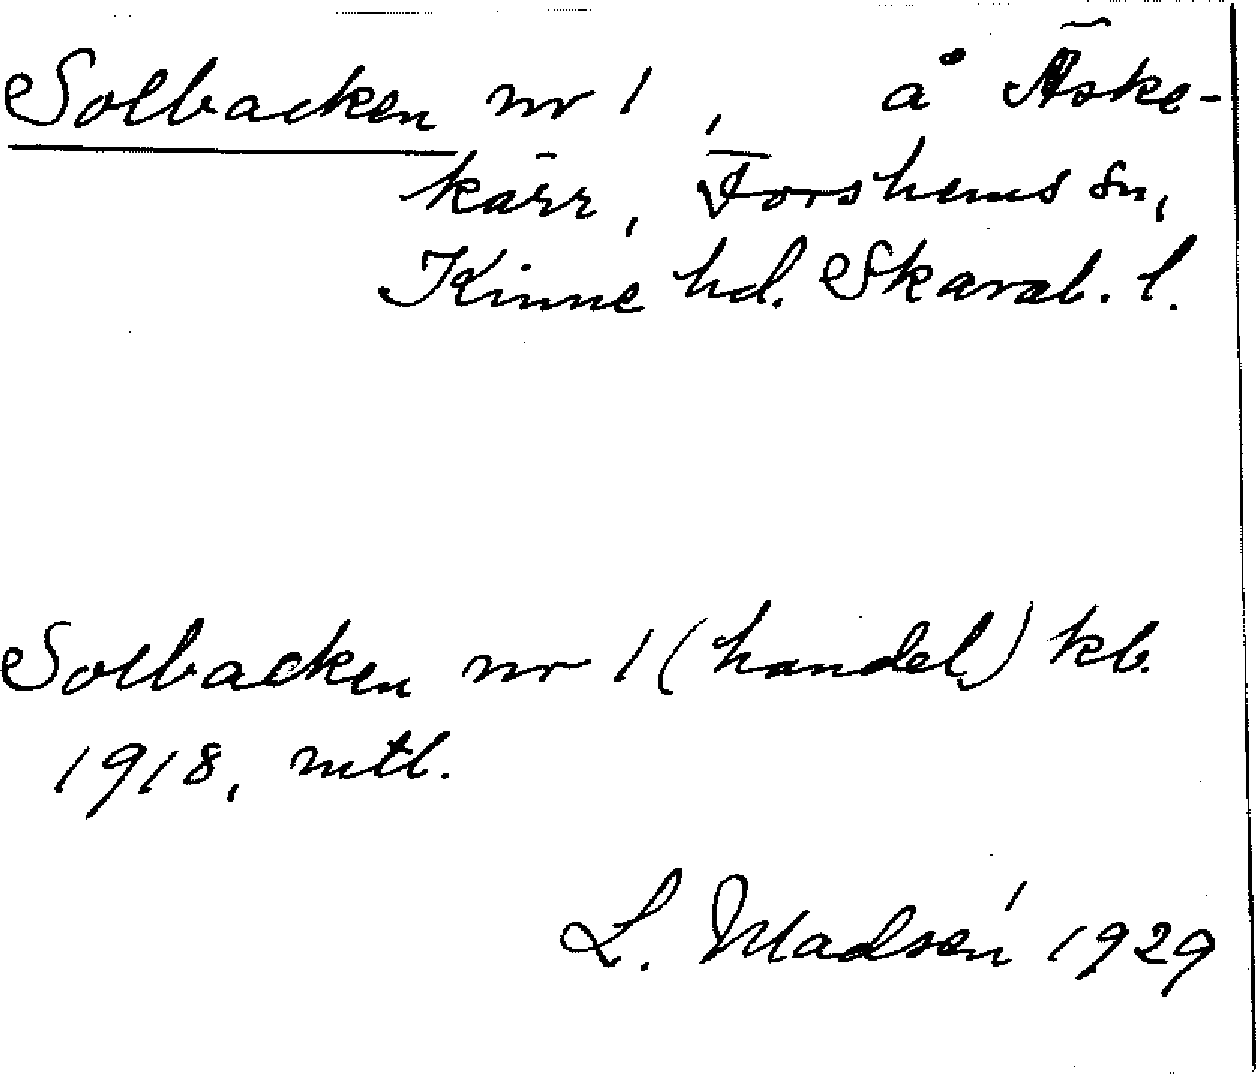 Solbacken nr 1, å Äske-
kärr, Forshems sn,
Kinne hd. Skarab. l.
Solbacken nr 1 (handel) kb.
1918, mtl.
L. Madsén 1929